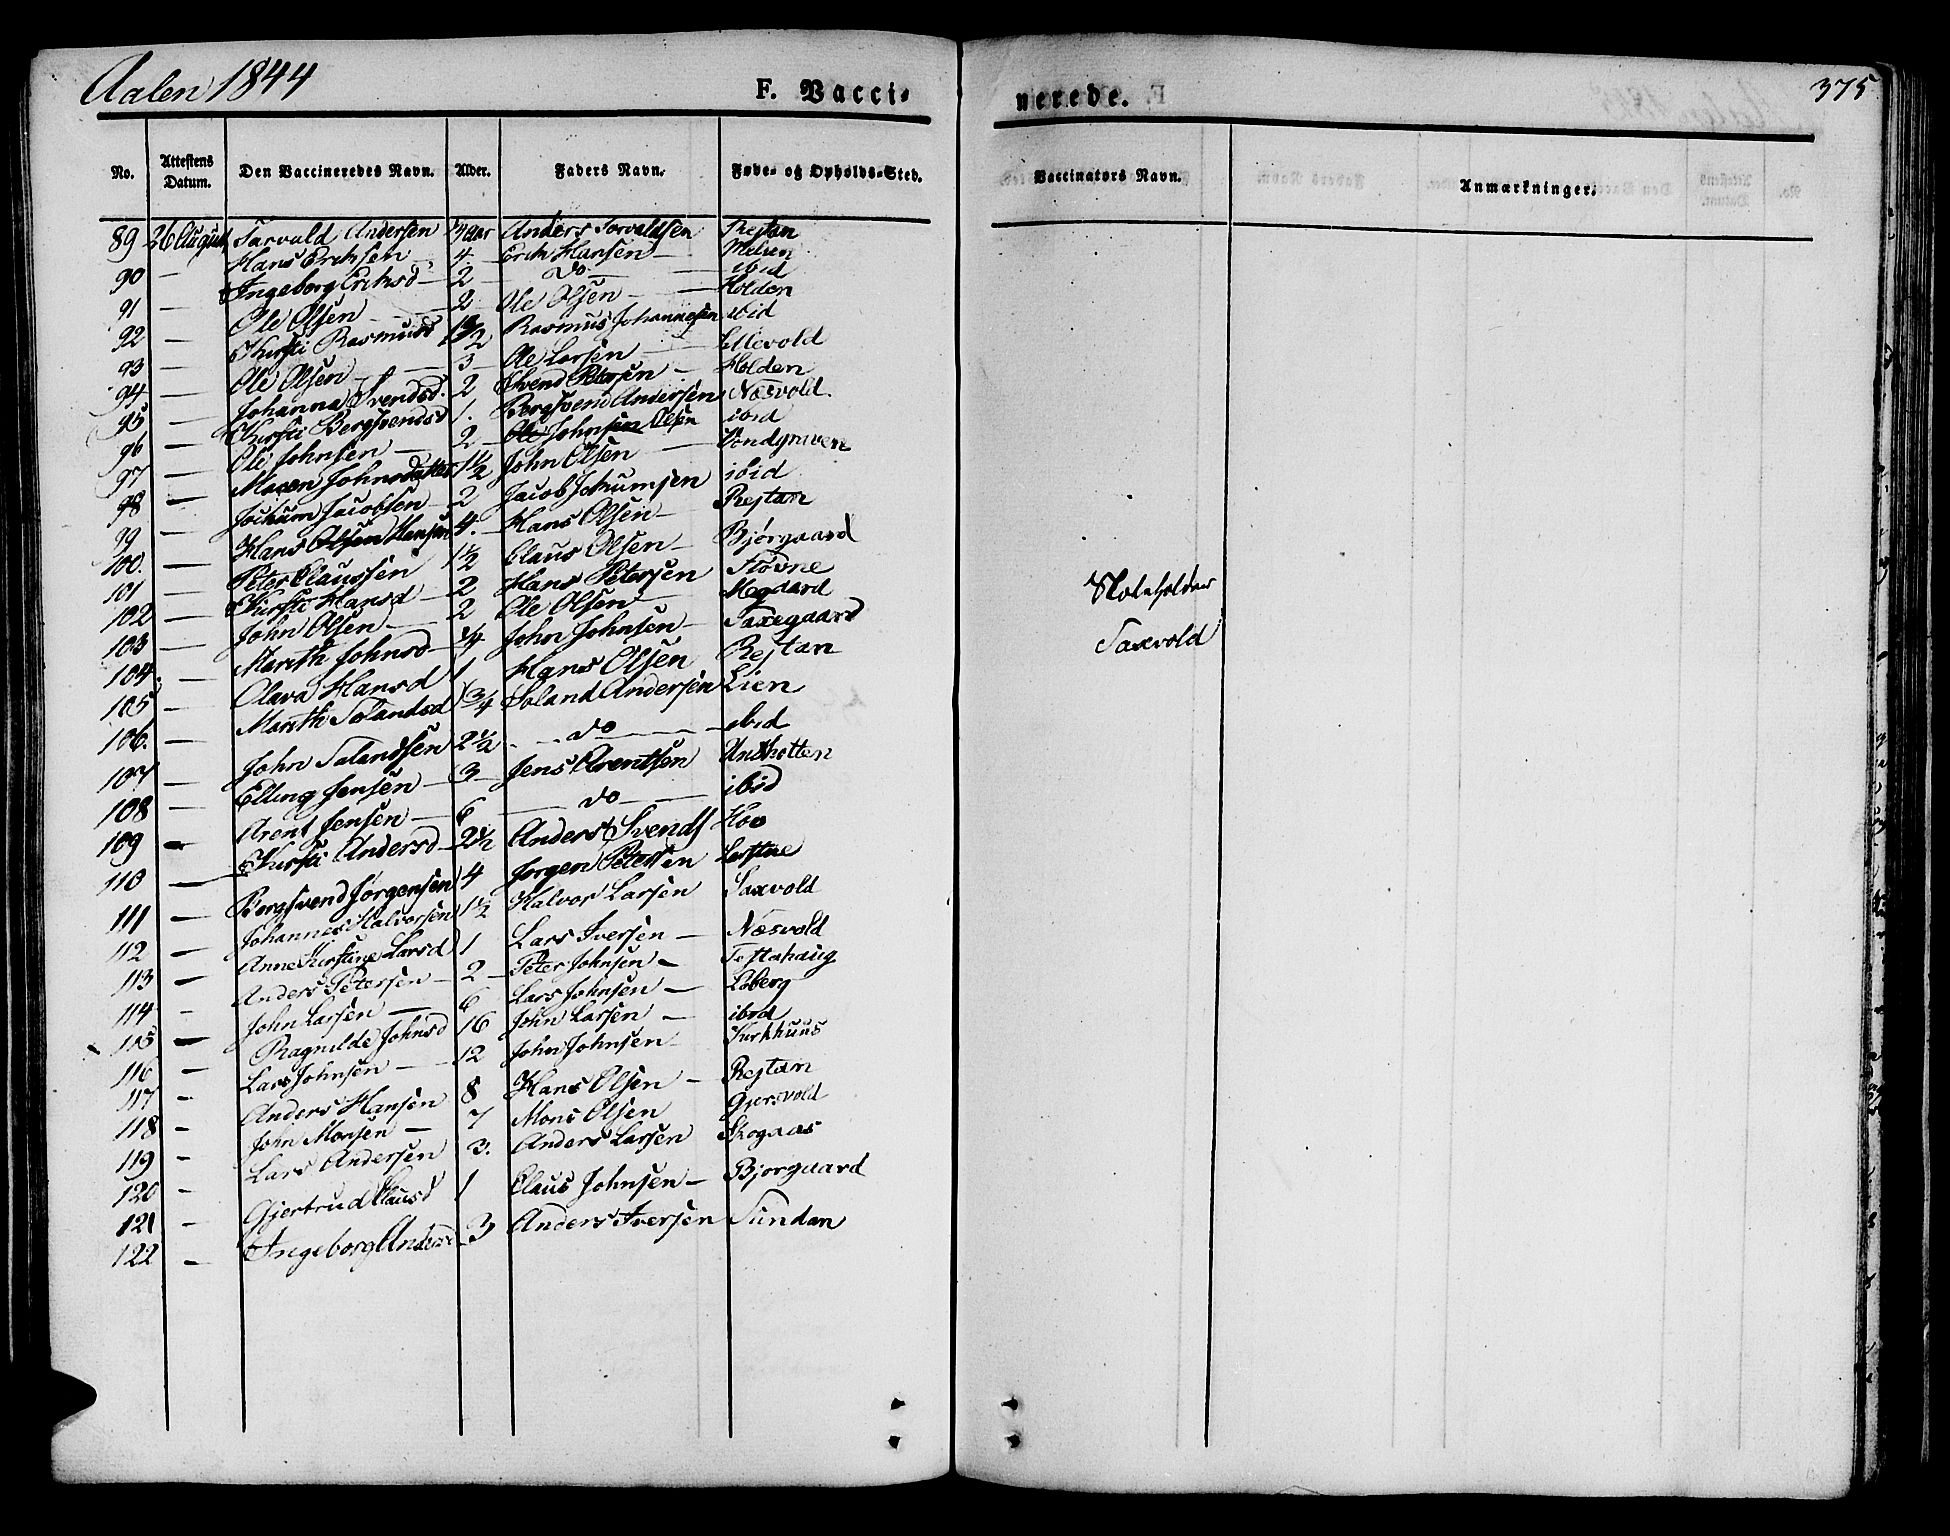 Aalen 1844
F. Vacci-
nerede.
375
No. Attestens Datum. Den Vaccineredes Navn. Alder. Faders Navn. Føde- og Opholds-Sted. Vaccinators Navn. Anmærkninger.
89 26 August Tarvald Andersen Aar Anders Torvaldsen Rejtan
90 — Hans Erichsen — 4 — Erich Hansen —
91 — Ingeborg Eriksd — 2 — do — ibid
92 — Ole Olsen — 2 Ole Olsen — Holden
93 — Kirsti Rasmusd 1 1/2 Rasmus Johannesen ibid
94 — Ole Olsen — 3 — Ole Larsen — Ellevold
95 — Johanna Svendsd. 2 Svend Petersen — Holden
96 — Kirsti Bergsvendsd 1. Bergsvend Andersen Næsvold
97 — Ole Johnsen — 2 — Ole Johnsen Olsen ibid
98 — Maren Johnsdatter 1 1/2 John Olsen —
99 — Jochum Jacobsen — 2 Jacob Jochumsen ibid
100. — Hans Olsen Hansen 4. — Hans Olsen — Rejtan
101 — Peter Claussen 1 1/2 Claus Olsen — Bjørgaard
102 — Kirsti Hansd — 2 Hans Petersen Støvne
103 — John Olsen — 2 Ole Olsen — Mogaard
104 — Marith Johnsd — 1/4 John Johnsen — Saxegaard
105 — Olava Hansd 1 Hans Olsen Rejtan
106. — Marith Tolandsd 1 3/4 Toland Andersen Lien
107 — John Talandsen 2 1/2 — do — ibid
108 — Elling Jensen — 3 — Jens Arentsen
109 — Arent Jensen — 6 — do — ibid
110 — Kirsti Andersd — 2 1/2 Anders Svends Hov
111 — Bergsvend Jørgensen 4 Jørgen Petersen
112 — Johannes Halvorsen 1 1/2 Halvor Larsen Saxvold
113 — Anne Kirstine Larsd 1 Lars Iversen — Næsvold
114 — Anders Petersen — 2 — Peter Johnsen —
115 — John Larsen — 6 Lars Johnsen — Loberg
116 — Ragnilde Johnsd 16 John Larsen — ibid
117 — Lars Johnsen — 12 John Johnsen — Kirkhuus
118 — Anders Hansen 8 Hans Olsen — Rejtan
119 — John Monsen — 7 Mons Olsen Gjersvold
120 — Lars Andersen 3. Anders Larsen Skogaas
121 — Gjertrud Clausd 1 Claus Johnsen — Bjorgaard
122 — Ingeborg Andersd — 3 Anders Iversen Sundan
Skoleholder
Saxvold